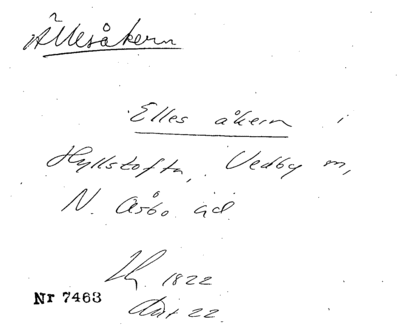 Ällesåkern
Elles åkern i
Hyllstofta, Vedby sn,
N. Åsbo hd.
1822
Nr 7463
Akt 22